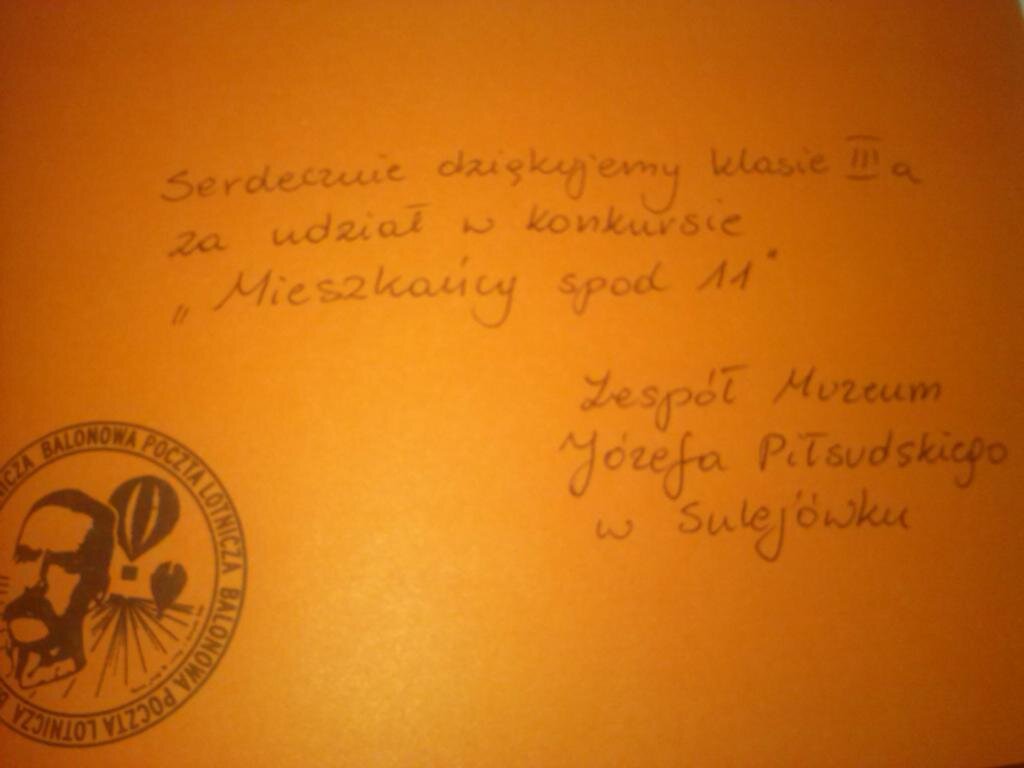 Serdecznie dziękujemy klasie III a
za udział w konkursie
„Mieszkańcy spod 11"
Zespół Muzeum
Józefa Piłsudskiego
w Sulejówku
BALONOWA POCZTA LOTNICZA BALONOWA POCZTA LOTNICZA